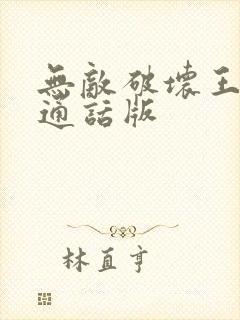 無敵破壞王
通話版
林直亨